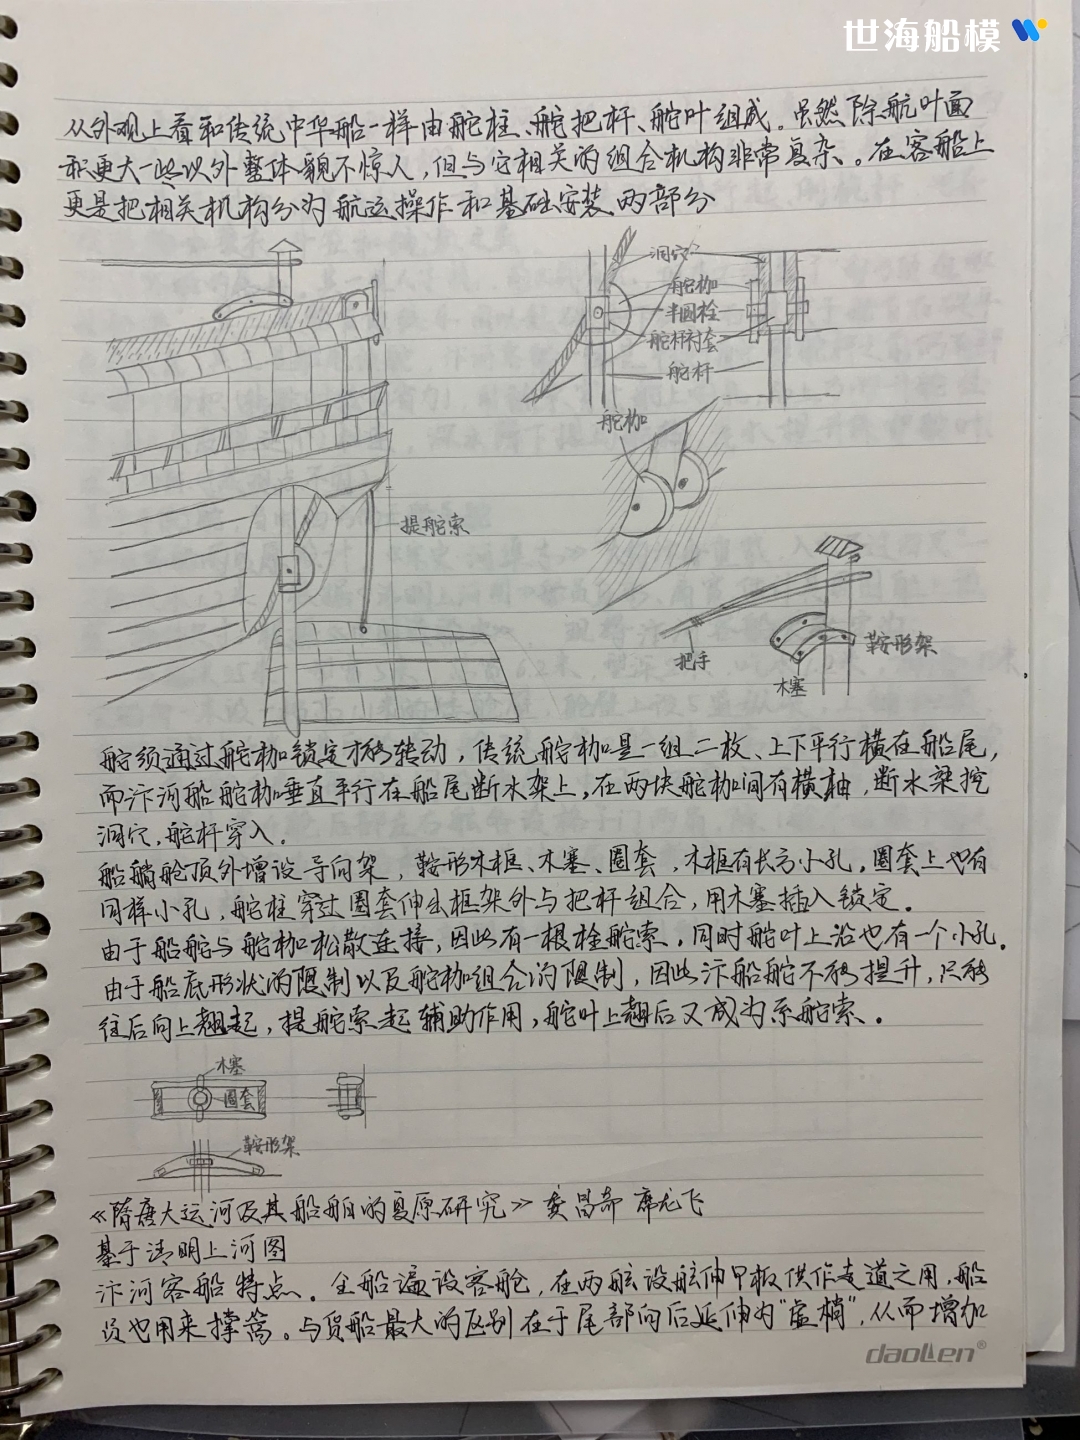 世海船模
从外观上看和传统中华船一样由舵柱、舵把杆、舵叶组成。虽然除航叶面
积更大一些以外整体貌不惊人，但与它相关的组合机构非常复杂。在客船上
更是把相关机构分为航运操作和基础安装两部分
洞穴
舵枷
半圆栓
舵杆衬套
舵杆
舵枷
提舵索
把手
鞍形架
木塞
舵须通过舵枷锁定才能转动，传统舵枷是一组二枚、上下平行横在船尾，
而汴河船舵枷垂直平行在船尾断水架上，在两块舵枷间有横轴，断水梁挖
洞穴，舵杆穿入。
船艄舱顶外增设导向架，鞍形木框、木塞、圈套，木框有长方小孔，圈套上也有
同样小孔，舵柱穿过圈套伸出框架外与把杆组合，用木塞插入锁定。
由于船舵与舵枷松散连接，因此有一根栓舵索，同时舵叶上沿也有一个小孔。
由于船底形状的限制以及舵枷组合的限制，因此汴船舵不能提升，只能
往后向上翘起，提舵索起辅助作用，舵叶上翘后又成为系舵索。
木塞
圈套
鞍形架
《隋唐大运河及其船舶的复原研究》 龚昌奇 席龙飞
基于清明上河图
汴河客船特点。全船遍设客舱，在两舷设舷伸甲板供作走道之用，船
员也用来撑篙。与货船最大的区别在于尾部向后延伸为“虚梢”，从而增加
daoLen®